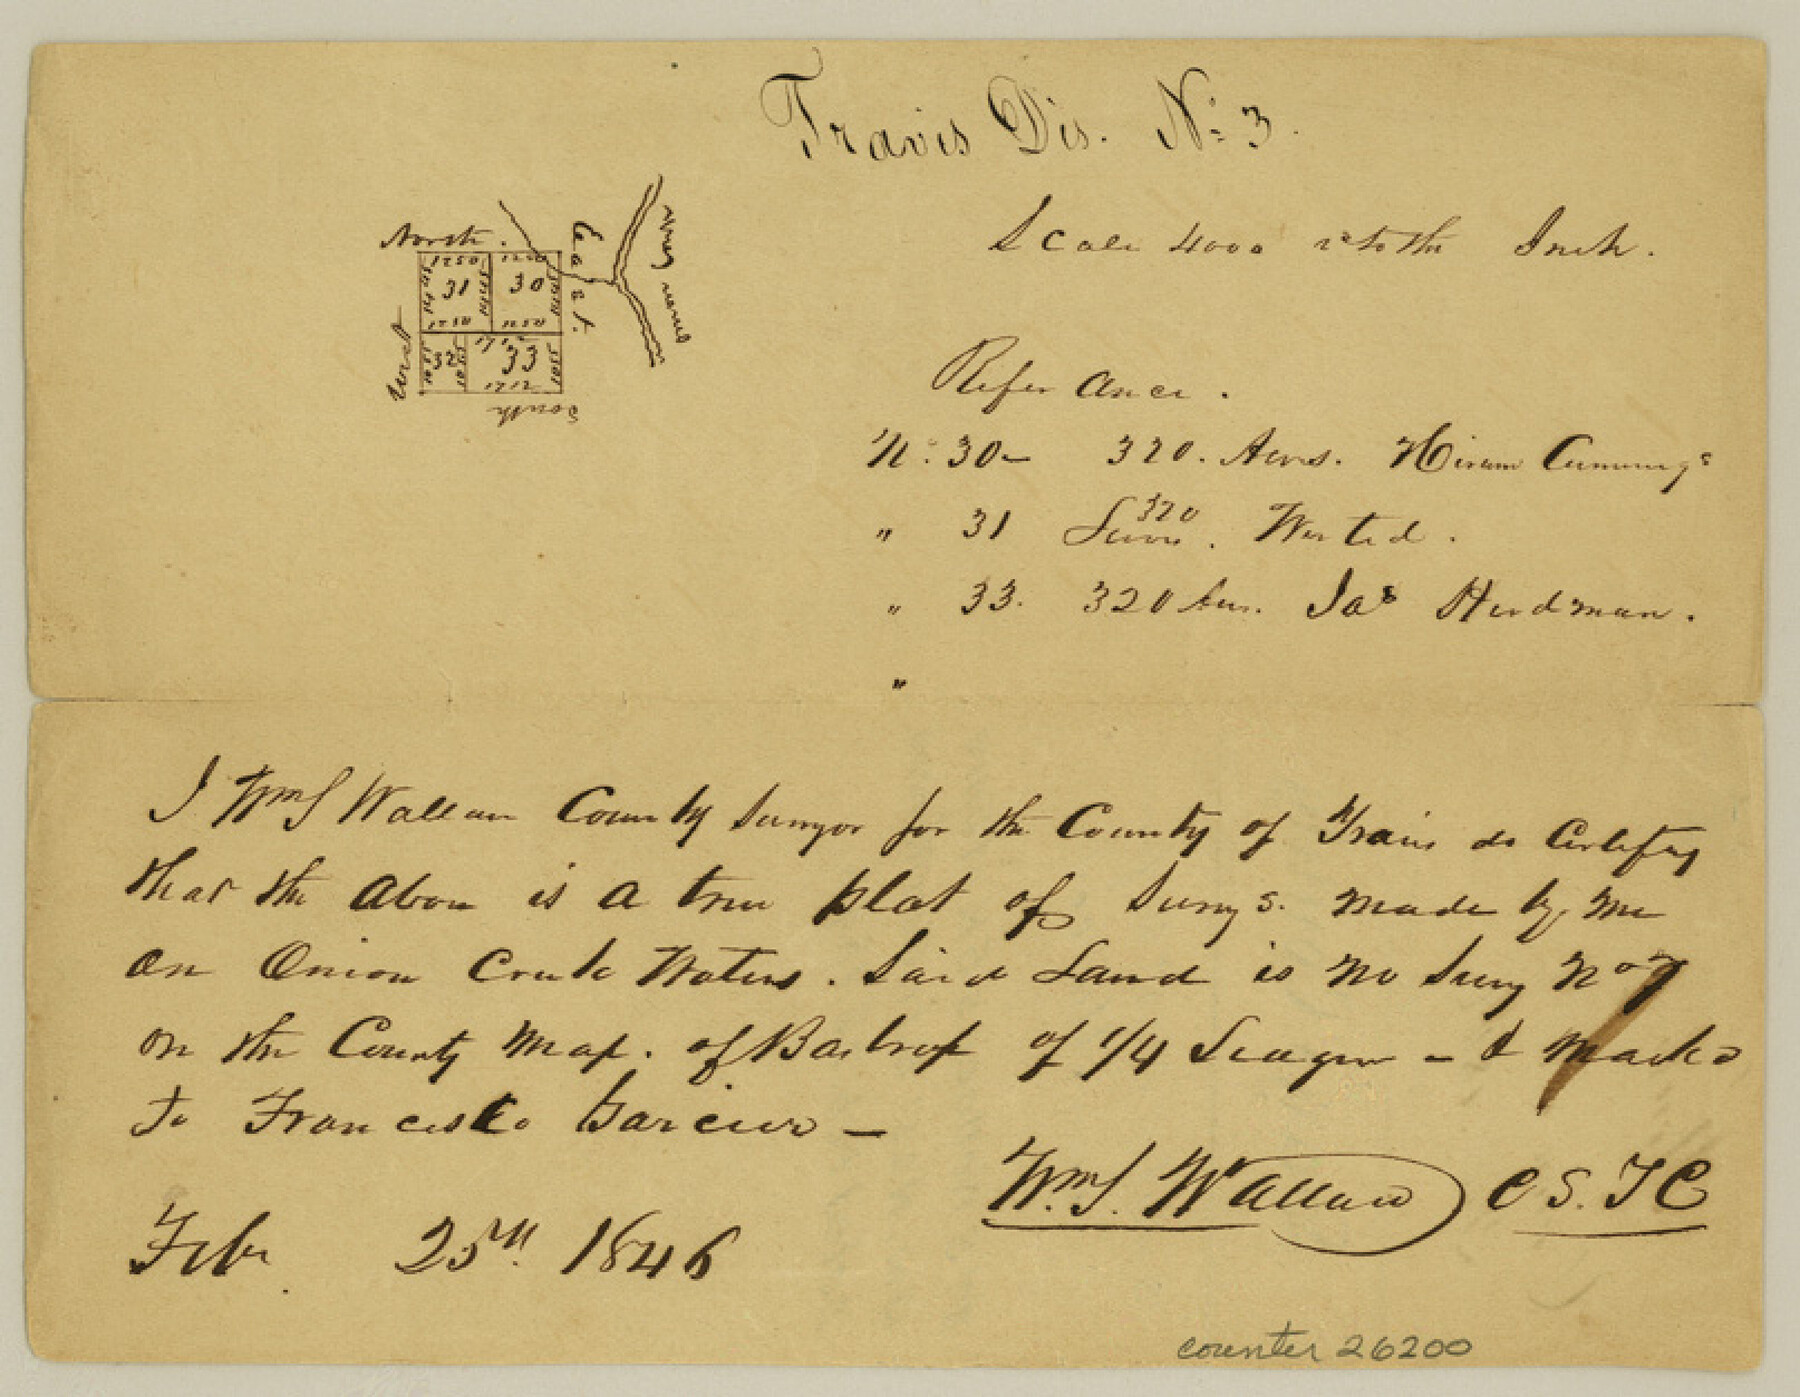 Travis Dis. No. 3.
Scale 4000 vs to the Inch.
North.
East.
West
South
31
30
32
33
Referance.
No. 30— 320. Acres. Hiram Cummings
" 31 320 Wasted.
" 33. 320 Acrs. Jas Herdman.
"
I Wm S Wallace County Surveyor for the County of Travis do Certify
that the above is a true plat of Survys. made by me
on Onion Creek Waters. Said Land is no Survy No 7
on the County Map. of Bastrop of 1/4 League — & Marked
to Francisco Garcia —
Wm. S. Wallace C S. T C
Feb. 25th. 1846
counter 26200